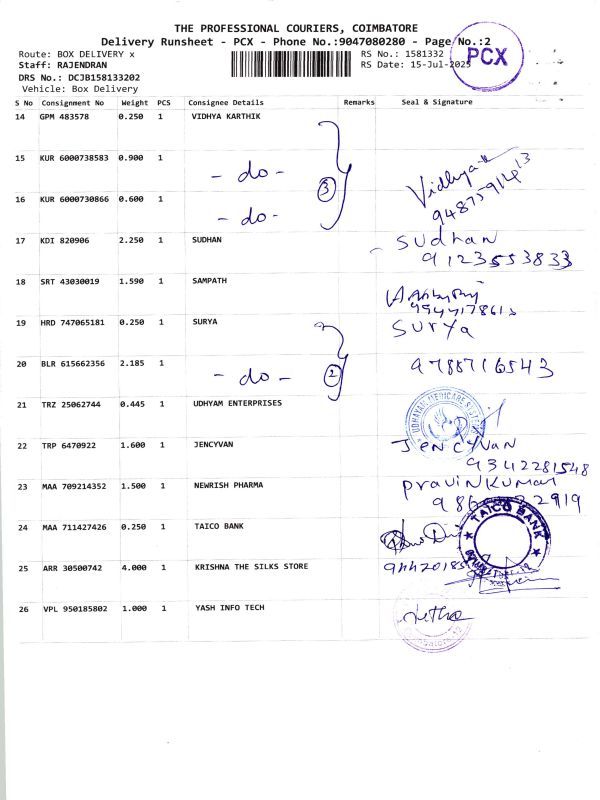 THE PROFESSIONAL COURIERS, COIMBATORE
Delivery Runsheet - PCX - Phone No.:9047080280 - Page No.:2
PCX
Route: BOX DELIVERY x RS No.: 1581332
Staff: RAJENDRAN RS Date: 15-Jul-2025
DRS No.: DCJB158133202
Vehicle: Box Delivery
S No Consignment No Weight PCS Consignee Details Remarks Seal & Signature
14 GPM 483578 0.250 1 VIDHYA KARTHIK
15 KUR 6000738583 0.900 1 - do - 3 Vidhya
16 KUR 6000730866 0.600 1 - do -
17 KDI 820906 2.250 1 SUDHAN Sudhan
9123553833
18 SRT 43030019 1.590 1 SAMPATH
19 HRD 747065181 0.250 1 SURYA Surya
20 BLR 615662356 2.185 1 - do - 2 9788716543
21 TRZ 25062744 0.445 1 UDHYAM ENTERPRISES
22 TRP 6470922 1.600 1 JENCYVAN Jencyvan
9342281548
23 MAA 709214352 1.500 1 NEWRISH PHARMA Pravinkumar
24 MAA 711427426 0.250 1 TAICO BANK TAICO BANK
25 ARR 30500742 4.000 1 KRISHNA THE SILKS STORE
26 VPL 950185802 1.000 1 YASH INFO TECH